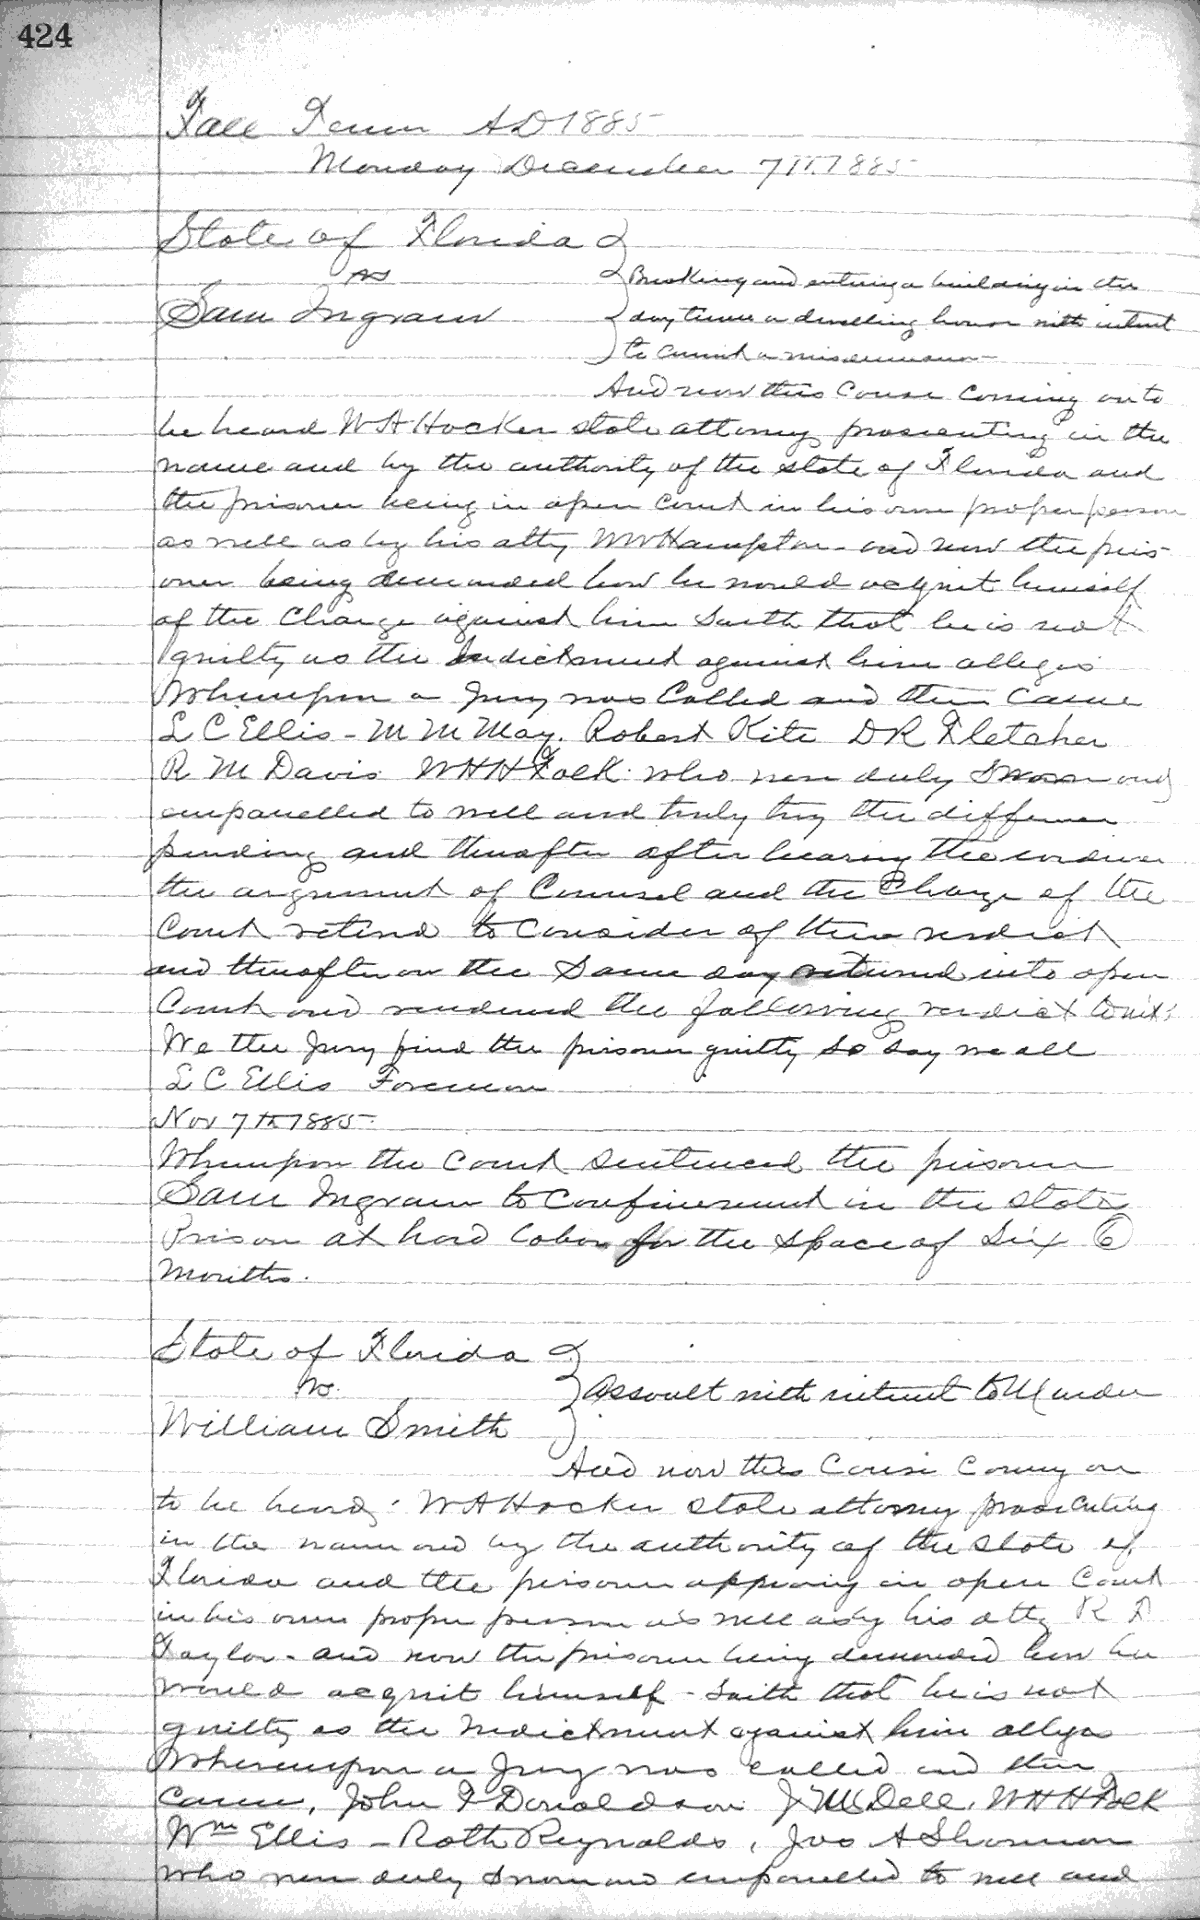 424
Fall Term AD 1885
Monday December 7th 1885
State of Florida
vs
Breaking and entering a building in the
Sam Ingram
day time a dwelling house with intent
to commit a misdemeanor
And now this Cause Coming on to
be heard W A Hocker state attorney prosecuting in the
name and by the authority of the state of Florida and
the prisoner being in open Court in his own proper person
as well as by his atty W W Hampton - and now the pris-
oner being demanded how he would acquit himself
of the Charge against him Saith that he is not
guilty as the Indictment against him alleges
Whereupon a Jury was Called and then Came
L C Ellis - M M May. Robert Kite D R Fletcher
R M Davis W H H Folk. who were duly Sworn and
empanelled to well and truly try the difference
pending and thereafter after hearing the evidence
the argument of Counsel and the Charge of the
Court retired to Consider of their verdict
and thereafter on the Same day returned into open
Court and rendered the following verdict towit:
We the Jury find the prisoner guilty so say we all
L C Ellis Foreman
Nov 7th 1885
Whereupon the Court Sentenced the prisoner
Sam Ingram to Confinement in the State
Prison at hard labor for the Space of Six 6
Months.
State of Florida
vs.
Assault with intent to Murder
William Smith
And now this Cause Coming on
to be heard. W A Hocker state attorney prosecuting
in the name and by the authority of the State of
Florida and the prisoner appearing in open Court
in his own proper person as well as by his atty
Taylor - and now the prisoner being demanded how he
would acquit himself - Saith that he is not
guilty as the Indictment against him alleges
Whereupon a Jury was called and then
Came, John F Donaldson J M Dell, W H H Folk
Wm Ellis - Roth Reynolds, Jno A Shannon
who were duly Sworn and empanelled to well and